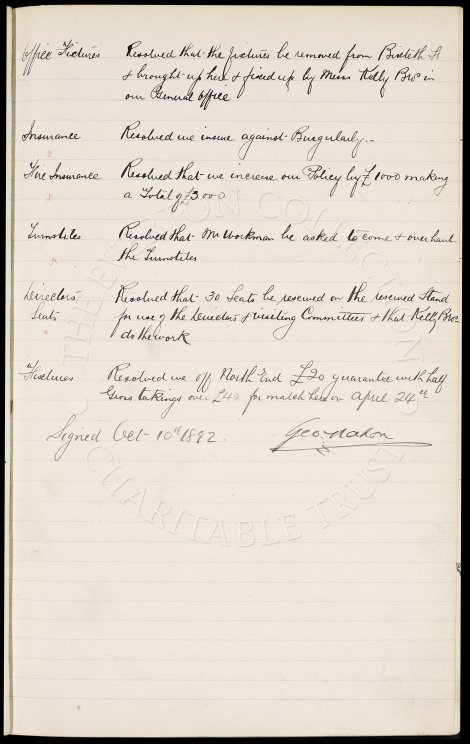 Office Fixtures Resolved that the fixtures be removed from Bixteth St
& brought up here & fixed up by Messrs Kelly Bros in
our General Office
Insurance Resolved we insure against Burgularly.-
Fire Insurance Resolved that we increase our Policy by £1000 making
a Total of £3000
Turnstiles Resolved that Mr Workman be asked to come & overhaul
the Turnstiles
Directors Resolved that 30 Seats be reserved on the reserved Stand
Seats for use of the Directors & visiting Committees & that Kelly Bros
do the work
Fixtures Resolved we off North End £20 guarantee with half
Gross takings over £40 for match here on April 24th
Signed Oct 10th 1892. Geo. Mahon
THE EVERTON COLLECTION
CHARITABLE TRUST